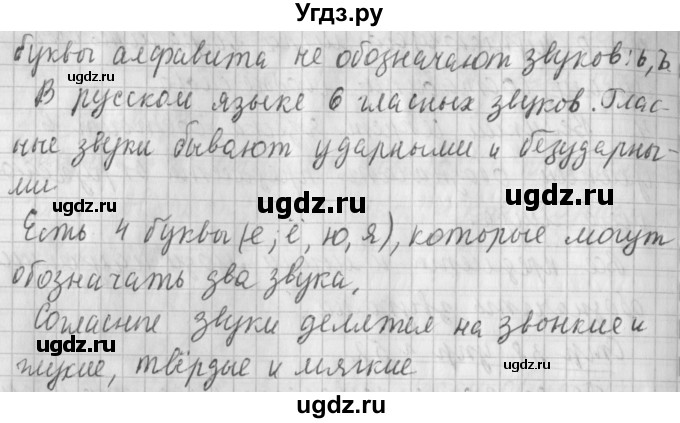 Угдз.ру
буквы алфавита не обозначают звуков: ь, ъ.
ugdz.ru ugdz.ru
В русском языке 6 гласных звуков. Глас-
ugdz.ru
ные звуки бывают ударными и безударны-
ми
ugdz.ru ugdz.ru
Есть 4 буквы (е, ё, ю, я), которые могут
ugdz.ru
обозначать два звука.
ugdz.ru
Согласные звуки делятся на звонкие и
ugdz.ru
глухие, твёрдые и мягкие
ugdz.ru
ugdz.ru